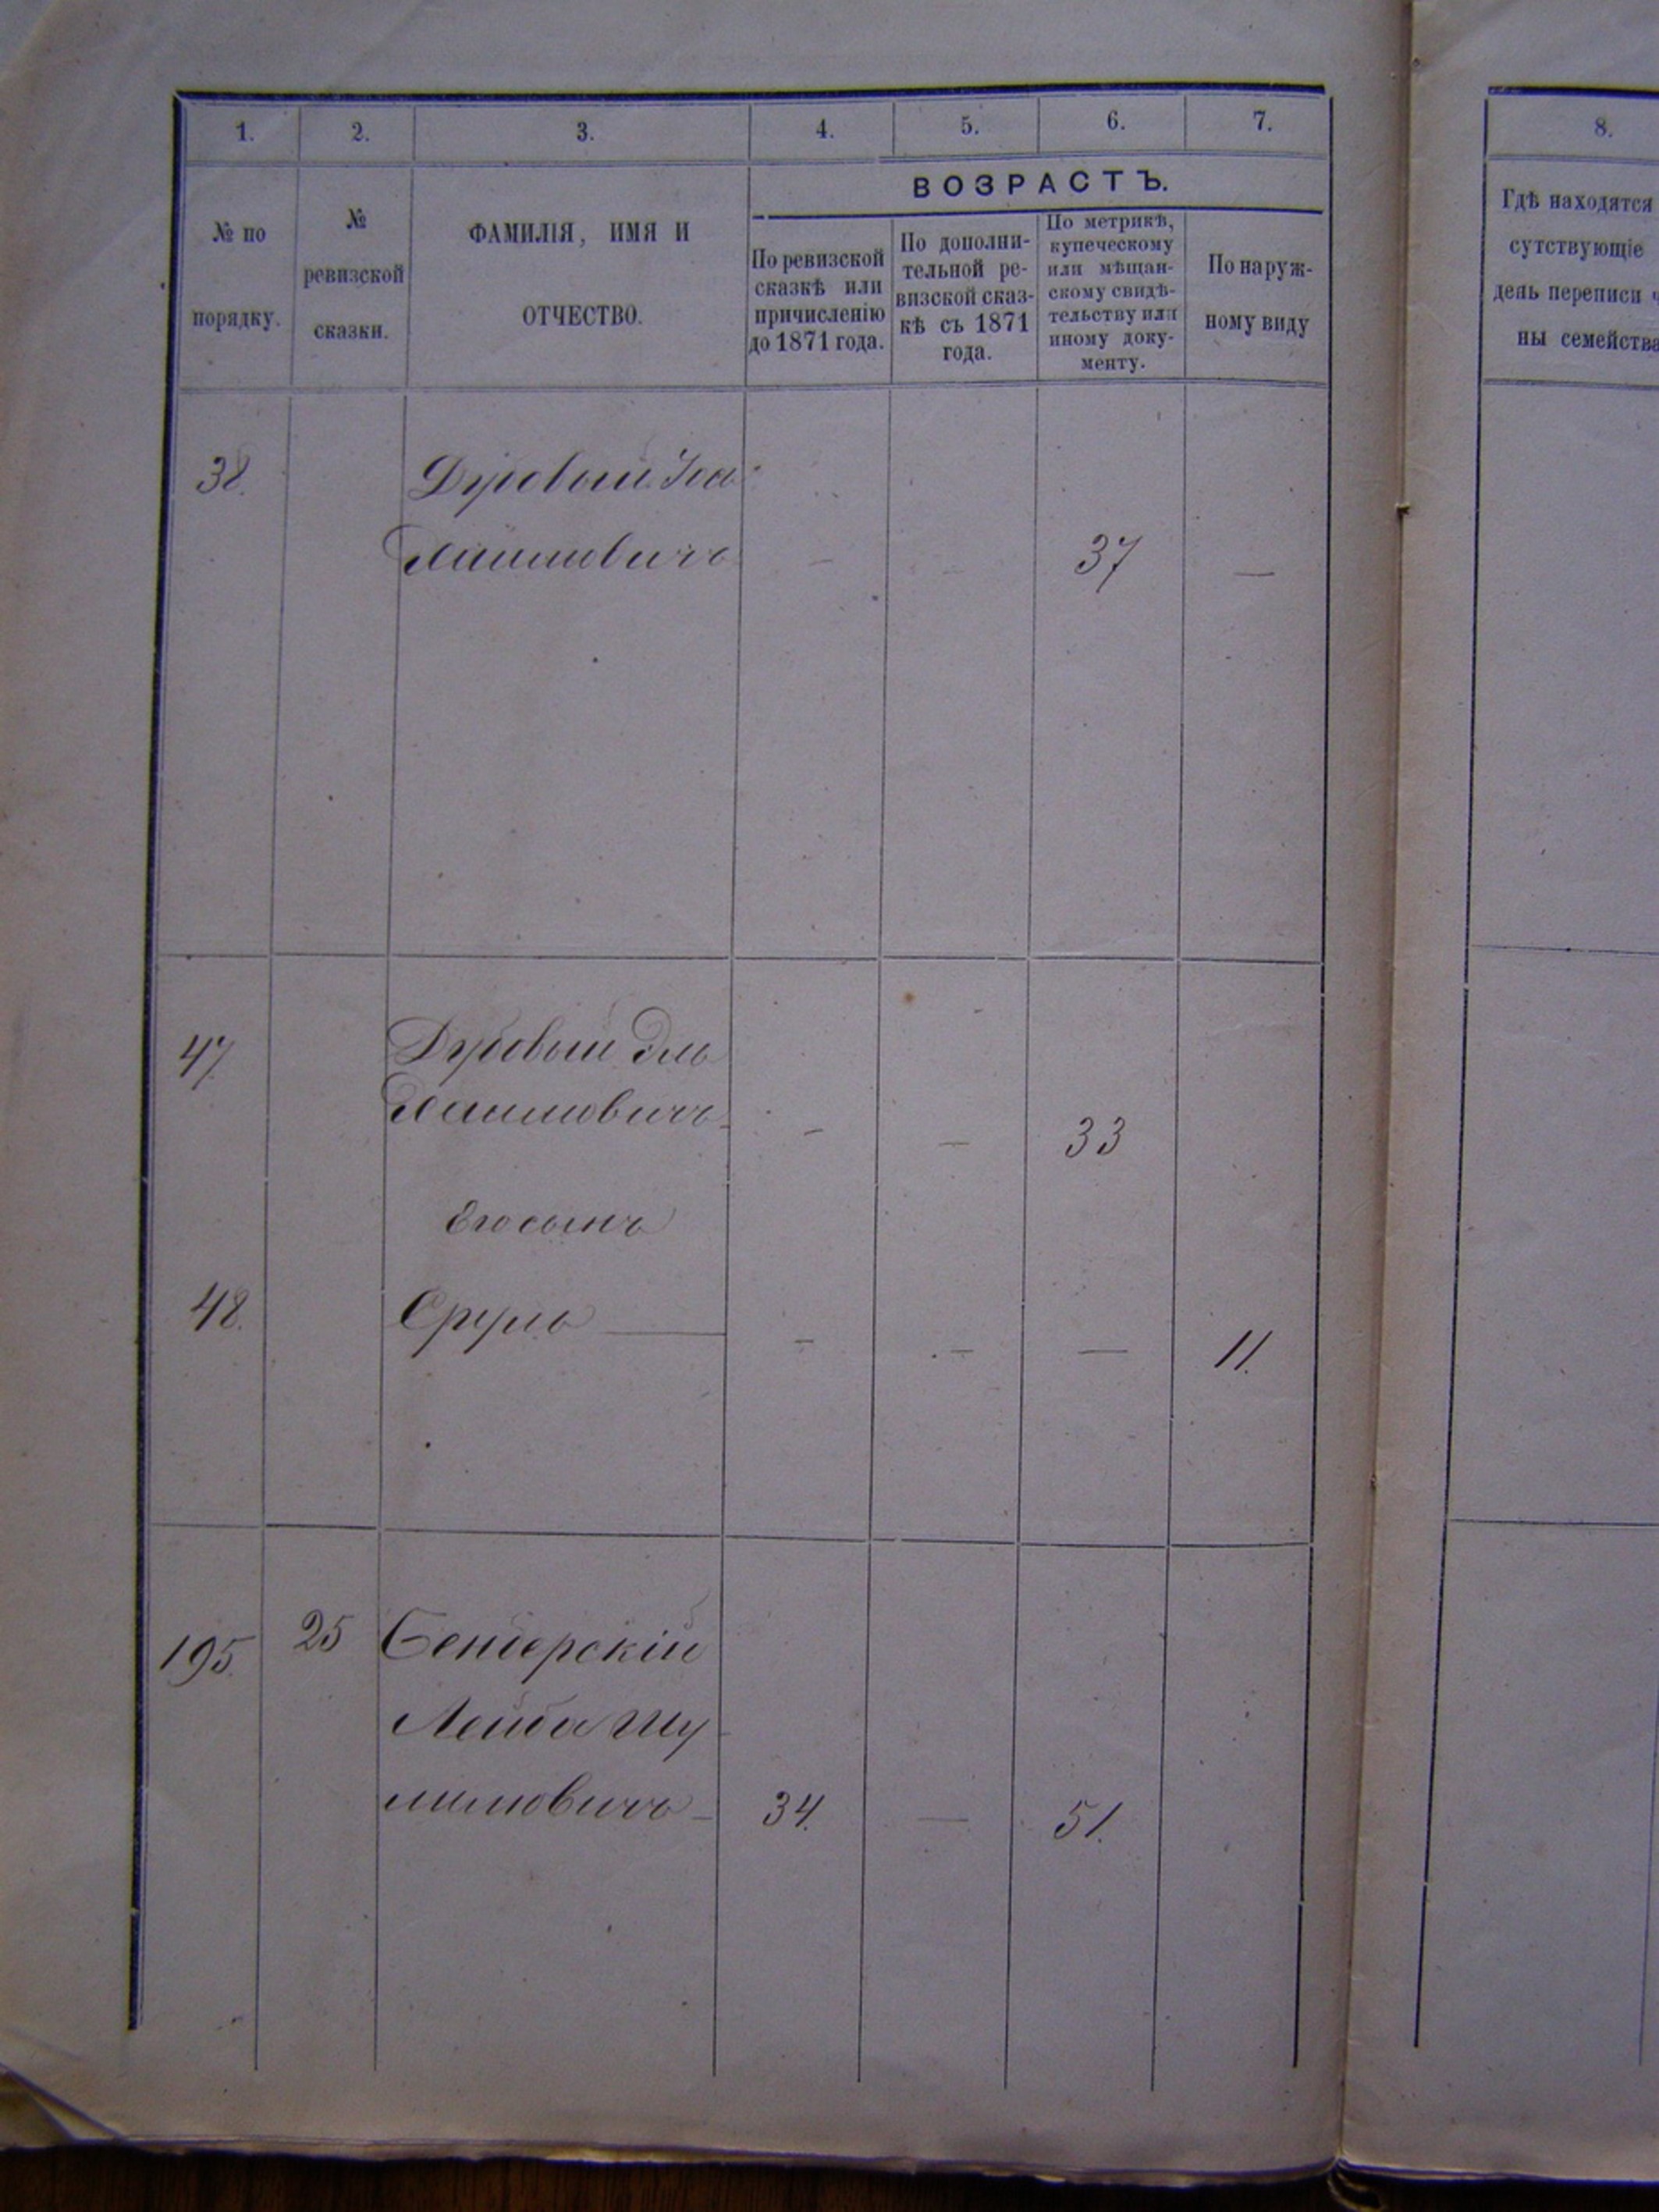 1. 2. 3. 4. 5. 6. 7. 8.
ВОЗРАСТЪ.
№ по
порядку.
№
ревизской
сказки.
ФАМИЛІЯ, ИМЯ И
ОТЧЕСТВО.
По ревизской
сказкѣ или
причисленію
до 1871 года.
По дополни-
тельной ре-
визской сказ-
кѣ съ 1871
года.
По метрикѣ,
купеческому
или мѣщан-
скому свидѣ-
тельству или
иному доку-
менту.
По наруж-
ному виду
Гдѣ находятся
сутствующіе
день переписи
ны семейства
38. Дубовый
Хаимовичъ — — 37 —
47. Дубовый Эль
Хаимовичъ — — 33
Его сынъ
48. Сруль — — — 11.
195. 25 Бендерскій
Лейба Шу
лимовичъ 34. — 51.